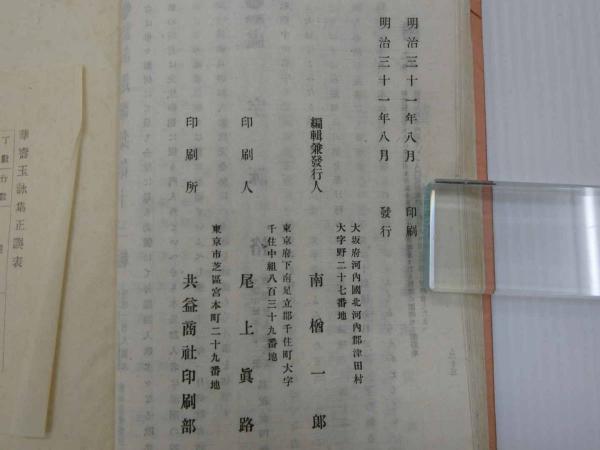 明治三十一年八月 印刷
明治三十一年八月 發行
大坂府河內國北河內郡津田村
大字野二十七番地
編輯兼發行人 南楢一郎
東京府下南足立郡千住町大字
千住中組八百三十九番地
印刷人 尾上眞路
東京市芝區宮本町二十九番地
印刷所 共益商社印刷部
華壽玉詠集正誤表
丁數